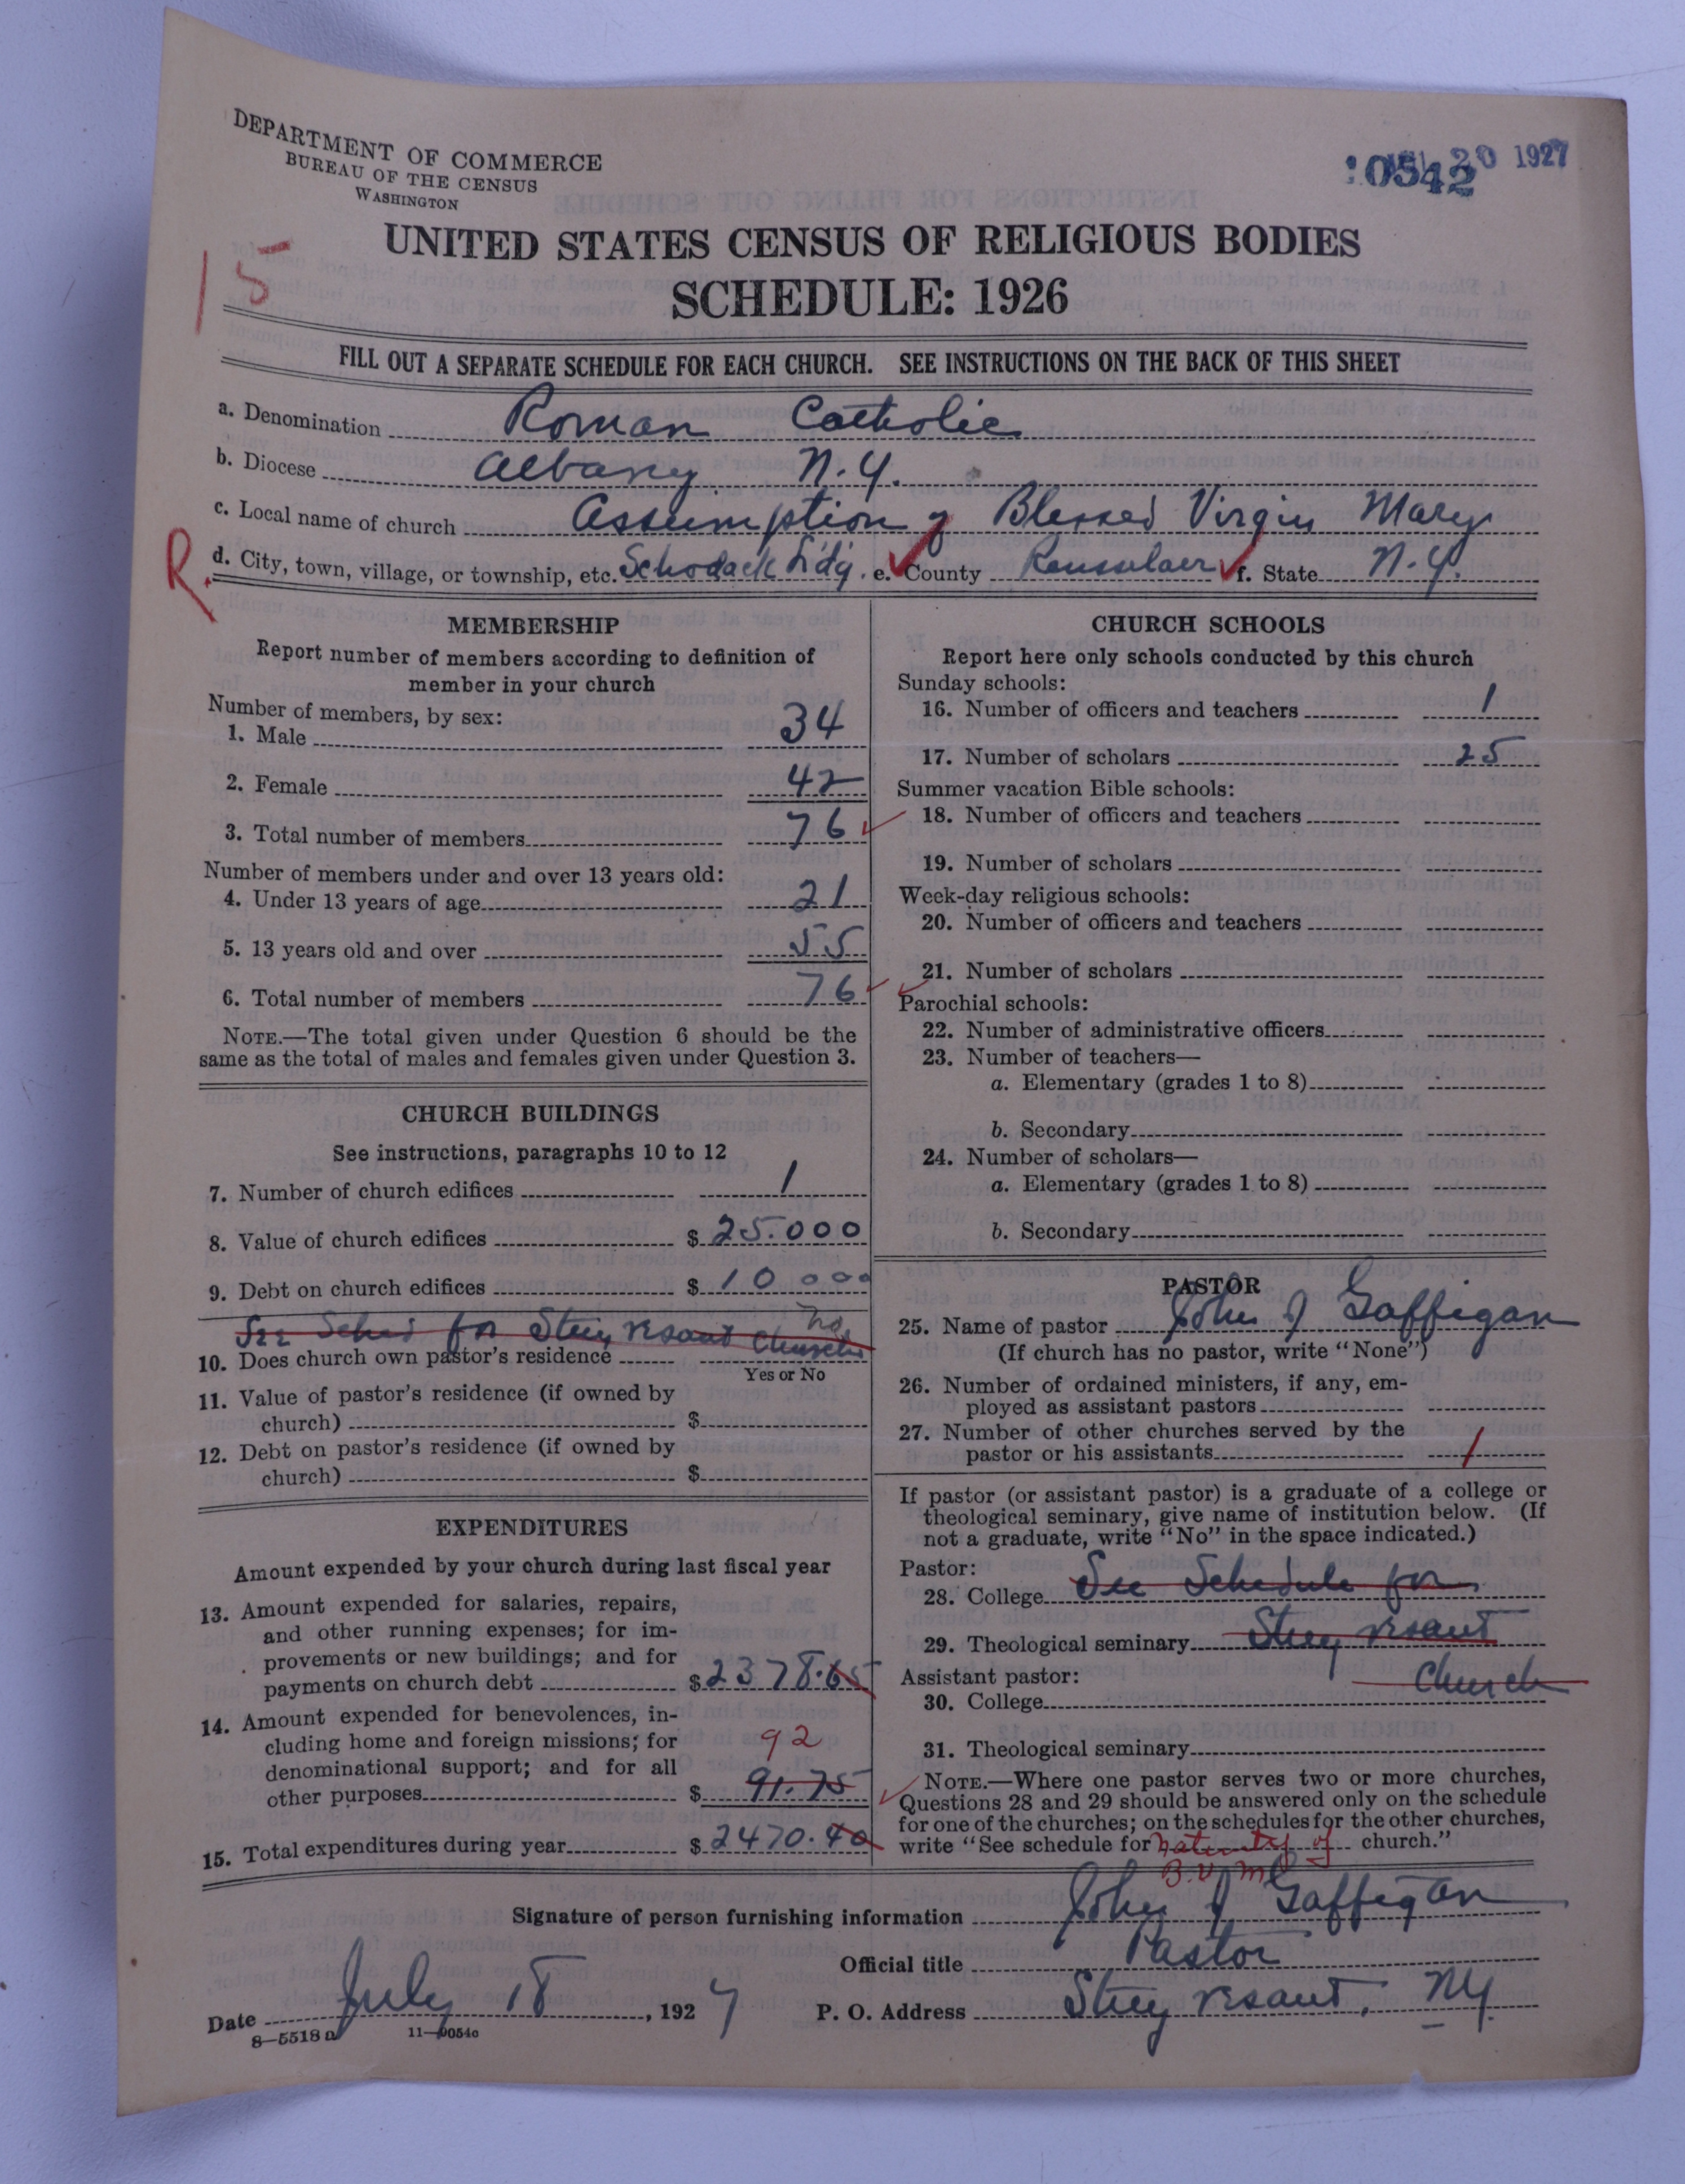 DEPARTMENT OF COMMERCE
BUREAU OF THE CENSUS
WASHINGTON
20 1927
0542
15
UNITED STATES CENSUS OF RELIGIOUS BODIES
SCHEDULE: 1926
FILL OUT A SEPARATE SCHEDULE FOR EACH CHURCH. SEE INSTRUCTIONS ON THE BACK OF THIS SHEET
a. Denomination Roman Catholic
b. Diocese Albany N.Y.
c. Local name of church Assumption of Blessed Virgin Mary
R. d. City, town, village, or township, etc. Schodack Ldg. e. County Rensselaer f. State N.Y.
MEMBERSHIP
Report number of members according to definition of
member in your church
Number of members, by sex:
1. Male 34
2. Female 42
3. Total number of members 76
Number of members under and over 13 years old:
4. Under 13 years of age 21
5. 13 years old and over 55
6. Total number of members 76
NOTE.—The total given under Question 6 should be the
same as the total of males and females given under Question 3.
CHURCH BUILDINGS
See instructions, paragraphs 10 to 12
7. Number of church edifices 1
8. Value of church edifices $ 25.000
9. Debt on church edifices $ 10 000
See Sched for Stuyvesant Church
no
10. Does church own pastor's residence
Yes or No
11. Value of pastor's residence (if owned by
church) $
12. Debt on pastor's residence (if owned by
church) $
EXPENDITURES
Amount expended by your church during last fiscal year
13. Amount expended for salaries, repairs,
and other running expenses; for im-
provements or new buildings; and for
payments on church debt $ 2378.65
14. Amount expended for benevolences, in-
cluding home and foreign missions; for
denominational support; and for all
92
other purposes $ 91.75
15. Total expenditures during year $ 2470.40
CHURCH SCHOOLS
Report here only schools conducted by this church
Sunday schools:
16. Number of officers and teachers 1
17. Number of scholars 25
Summer vacation Bible schools:
18. Number of officers and teachers
19. Number of scholars
Week-day religious schools:
20. Number of officers and teachers
21. Number of scholars
Parochial schools:
22. Number of administrative officers
23. Number of teachers—
a. Elementary (grades 1 to 8)
b. Secondary
24. Number of scholars—
a. Elementary (grades 1 to 8)
b. Secondary
PASTOR
25. Name of pastor John J Gaffigan
(If church has no pastor, write "None")
26. Number of ordained ministers, if any, em-
ployed as assistant pastors
27. Number of other churches served by the
pastor or his assistants 1
If pastor (or assistant pastor) is a graduate of a college or
theological seminary, give name of institution below. (If
not a graduate, write "No" in the space indicated.)
Pastor:
28. College See Schedule for
29. Theological seminary Stuyvesant
Assistant pastor: Church
30. College
31. Theological seminary
NOTE.—Where one pastor serves two or more churches,
Questions 28 and 29 should be answered only on the schedule
for one of the churches; on the schedules for the other churches,
write "See schedule for Nativity of church."
B.V.M.
Signature of person furnishing information John J Gaffigan
Official title Pastor
Date July 18, 1927 P. O. Address Stuyvesant, NY
8—5518 a 11—9054c